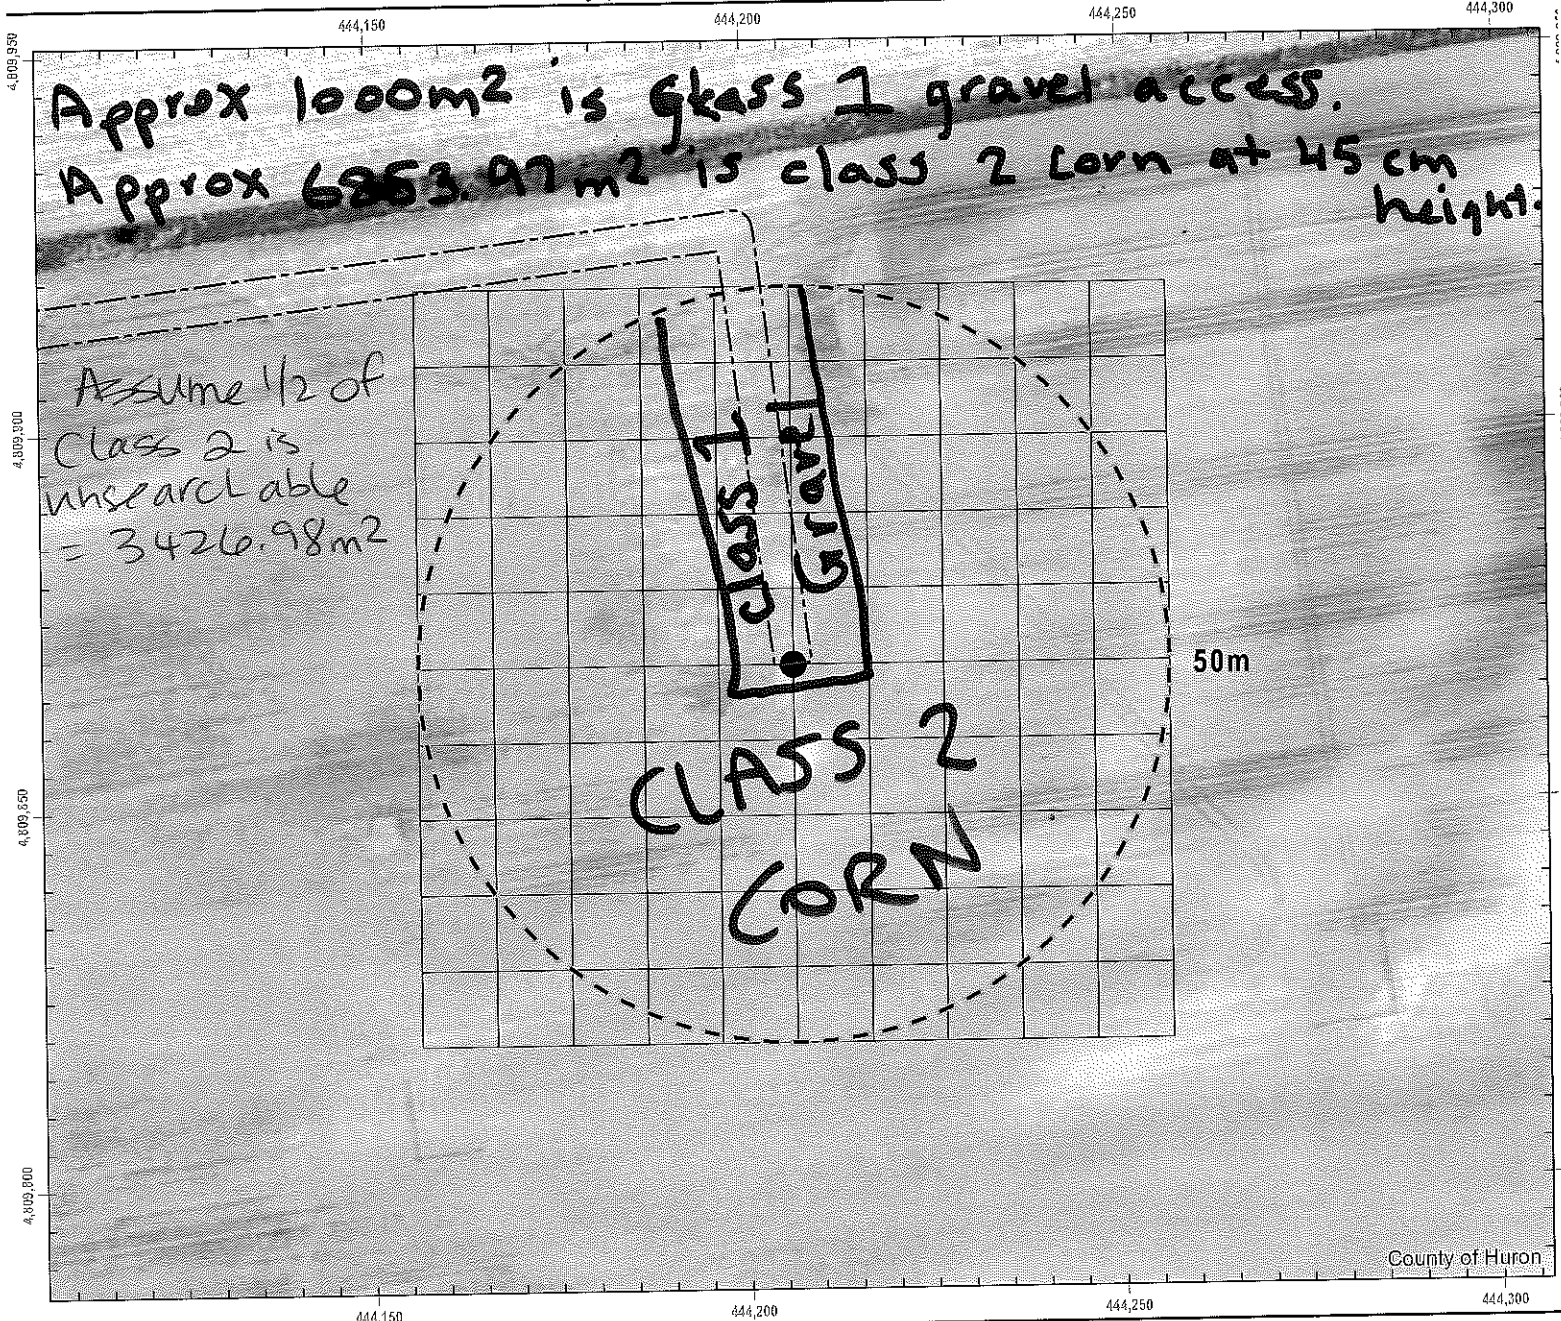 444,150 444,200 444,250 444,300
4,809,950
Approx 1000m² is Class 1 gravel access.
Approx 6853.97m² is class 2 corn at 45 cm
height.
Assume 1/2 of
Class 2 is
unsearchable
= 3426.98m²
4,809,900
Class 1
Gravel
50m
CLASS 2
CORN
4,809,850
4,809,800
County of Huron
444,150 444,200 444,250 444,300